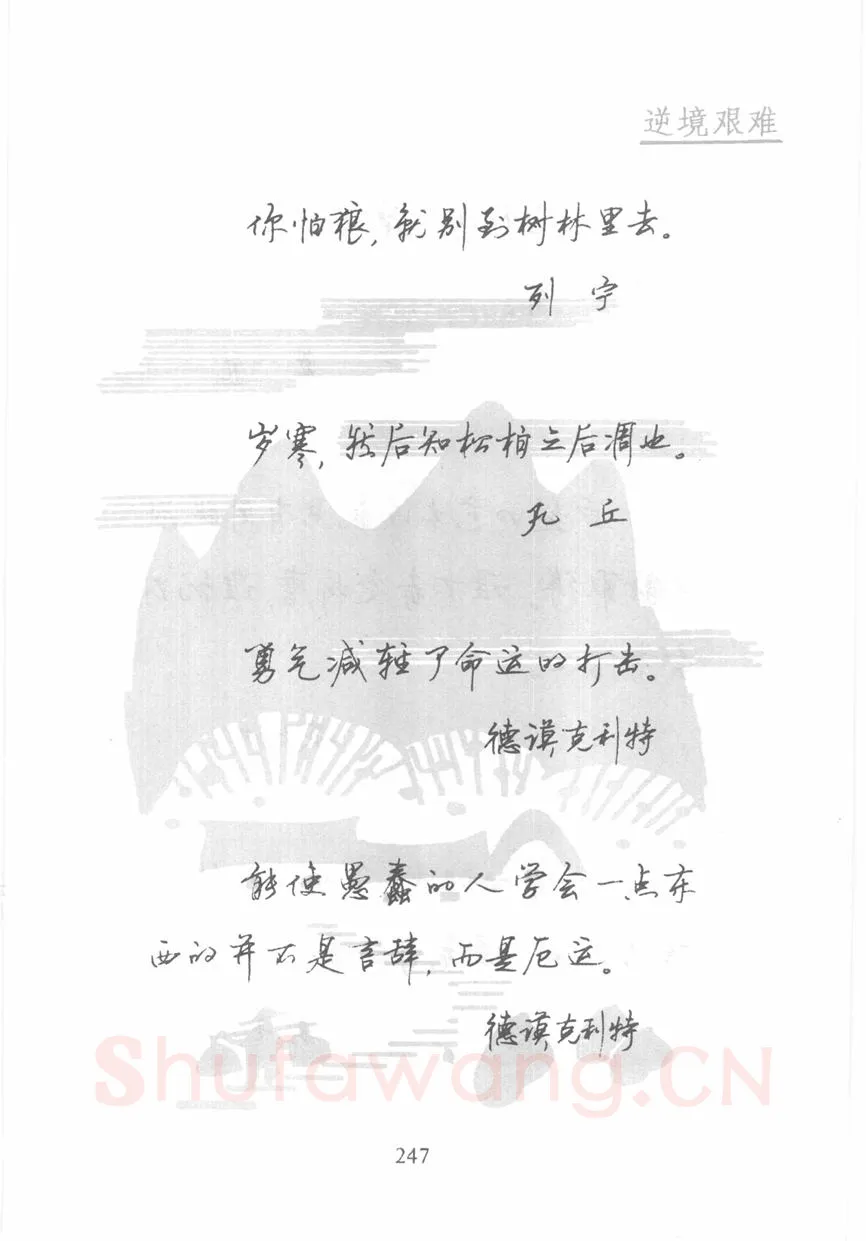 逆境艰难
你怕狼,就别到树林里去。
列 宁
岁寒,然后知松柏之后凋也。
孔 丘
勇气减轻了命运的打击。
德谟克利特
能使愚蠢的人学会一点东
西的并不是言辞,而是厄运。
德谟克利特
Shufawang.CN
247